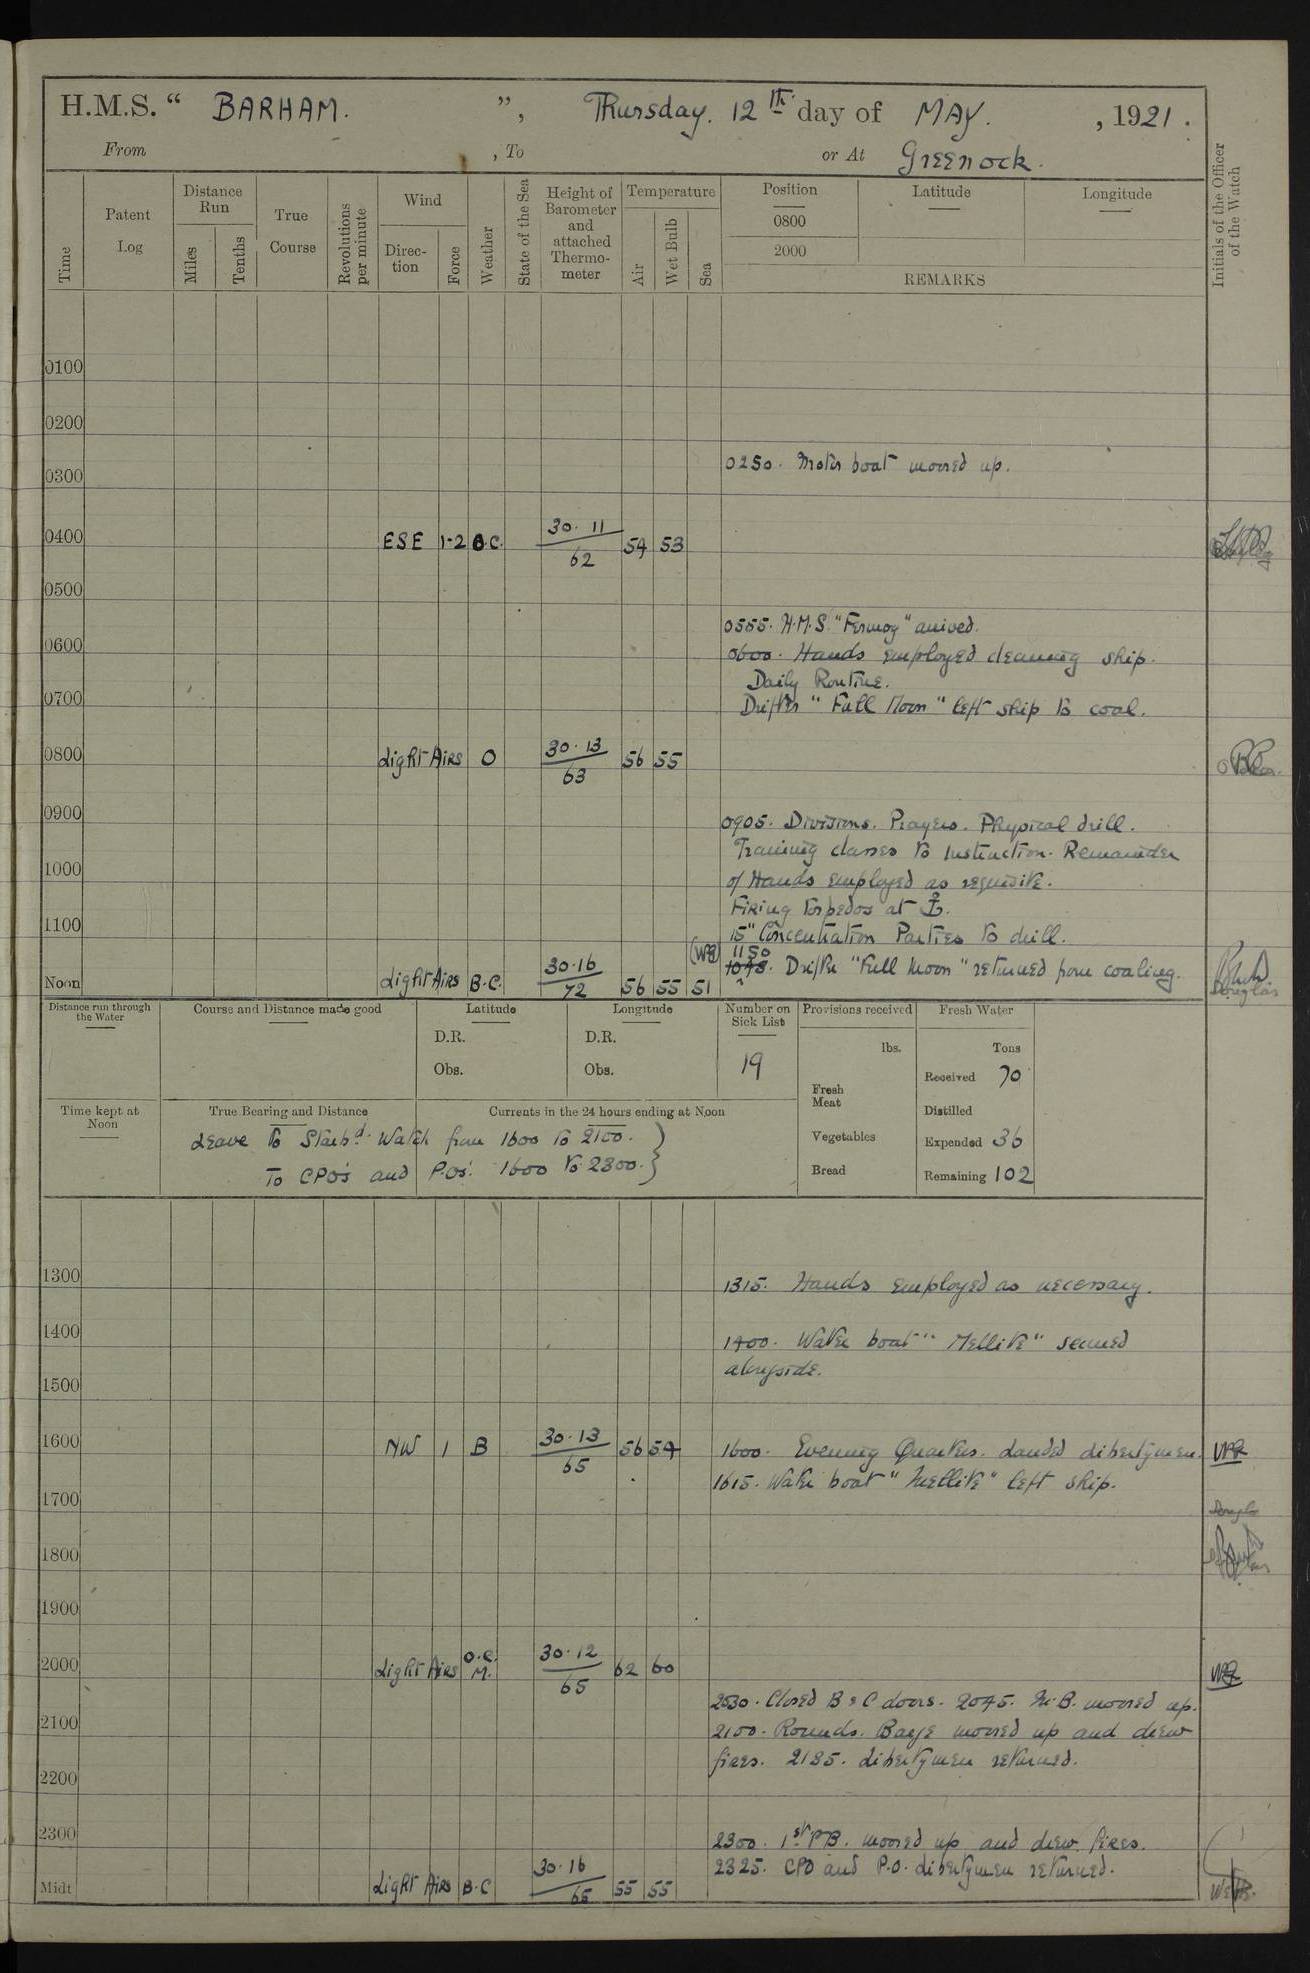 H.M.S. “ BARHAM. ”, Thursday. 12th day of MAY. , 1921.
From , To or At Greenock.
Time
Patent Log
Distance Run
Miles
Tenths
True Course
Revolutions per minute
Wind
Direc-tion
Force
Weather
State of the Sea
Height of Barometer and attached Thermo-meter
Temperature
Air
Wet Bulb
Sea
Position
0800
2000
Latitude
Longitude
REMARKS
Initials of the Officer of the Watch
0100
0200
0250. Motor boat moored up.
0300
0400 ESE 1-2 B.C. 30.11 / 62 54 53
0500
0555. H.M.S. "Fermoy" arrived.
0600
0600. Hands employed cleaning ship.
Daily Routine.
0700
Drifter "Full Moon" left ship to coal.
0800 Light Airs O 30.13 / 63 56 55
0900
0905. Divisions. Prayers. Physical drill.
Training classes to Instruction. Remainder
1000
of Hands employed as requisite.
Firing torpedos at ⚓.
1100
15" Concentration Parties to drill.
1150
1045. Drifter "Full Moon" returned from coaling.
Noon Light Airs B.C. 30.16 / 72 56 55 51
Douglas
Distance run through the Water
Course and Distance made good
Latitude
D.R.
Obs.
Longitude
D.R.
Obs.
Number on Sick List
19
Provisions received
lbs.
Fresh Meat
Vegetables
Bread
Fresh Water
Tons
Received 70
Distilled
Expended 36
Remaining 102
Time kept at Noon
True Bearing and Distance
Currents in the 24 hours ending at Noon
Leave to Starbd. Watch from 1600 to 2100.
To CPO's and P.Os. 1600 to 2300.
1300
1315. Hands employed as necessary.
1400
1400. Water boat "Mellite" secured
alongside.
1500
1600 NW 1 B 30.13 / 65 56 54 1600. Evening Quarters. Landed libertymen.
1615. Water boat "Mellite" left ship.
1700
1800
1900
2000 Light Airs O.C. M. 30.12 / 65 62 60
2030. Closed B & C doors. 2045. M.B. moored up.
2100
2100. Rounds. Barge moored up and drew
fires. 2135. Libertymen returned.
2200
2300
2300. 1st P.B. moored up and drew fires.
2325. CPO and P.O. libertymen returned.
Midt Light Airs B.C 30.16 / 65 55 55